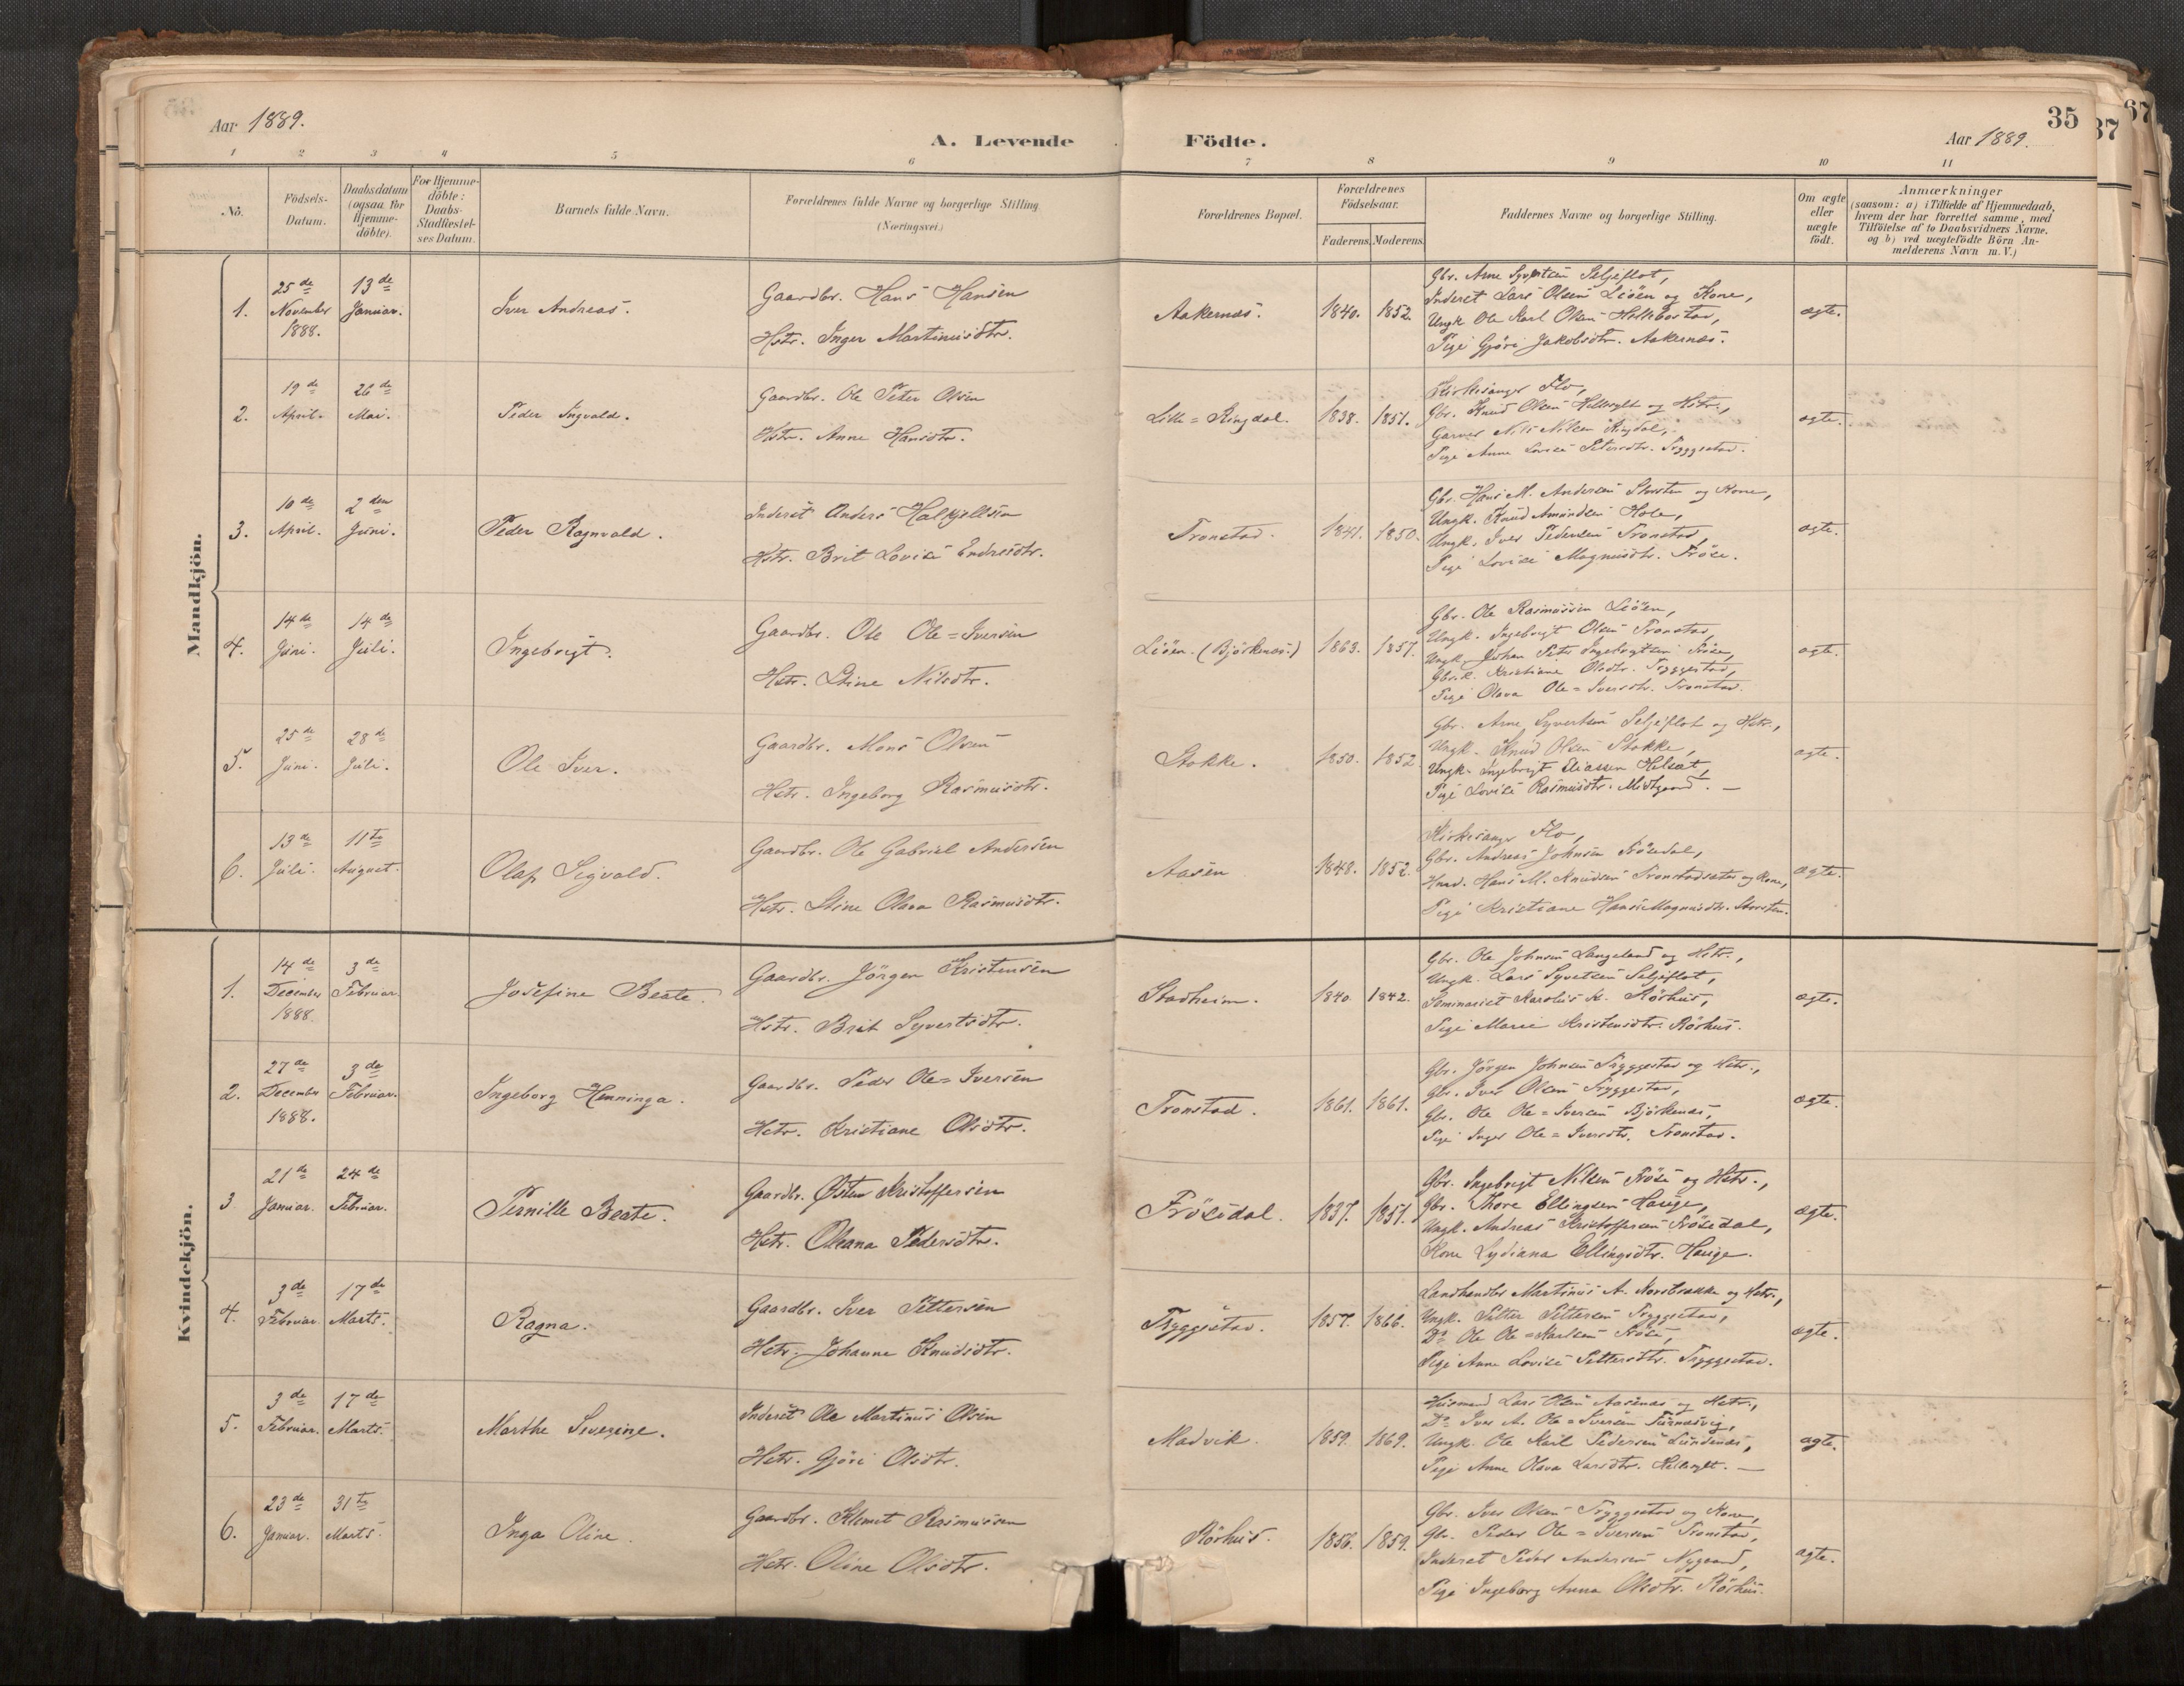 Aar 1889.
A. Levende Födte.
35
Aar 1889.
37
67
1 2 3 4 5 6 7 8 9 10 11
No.
Födsels-
Datum.
Daabsdatum
(ogsaa for
Hjemme-
döbte).
For Hjemme-
döbte:
Daabs-
Stadfæstel-
ses Datum.
Barnets fulde Navn.
Forældrenes fulde Navne og borgerlige Stilling
(Næringsvei.)
Forældrenes Bopæl.
Forældrenes
Födselsaar.
Faderens. Moderens.
Faddernes Navne og borgerlige Stilling.
Om ægte
eller
uægte
födt.
Anmærkninger
(saasom: a) i Tilfælde af Hjemmedaab,
hvem der har forrettet samme, med
Tilföielse af to Daabsvidners Navne,
og b) ved uægtefödte Börn An-
melderens Navn m.V.)
Mandkjön.
1.
25de
November
1888.
13de
Januar.
Iver Andreas.
Gaardbr. Hans Hansen
Hstr. Inger Martinusdtr.
Aakernæs.
1840. 1852.
Gbr. Arne Syvertsen Seljeflot,
Inderst Lars Olsen Liöen og Kone,
Ungk. Ole Karl Olsen Hellebostad,
Pige Gjöri Jakobsdtr. Aakernæs.
ægte.
2.
19de
April.
26de
Mai.
Peder Ingvald.
Gaardbr. Ole Peter Olsen
Hstr. Anne Hansdtr.
Lille=Ringdal.
1838. 1851.
Kirkesanger Flo,
Gbr. Knud Olsen Hellesylt og Hstr.,
Garver Nils Nilsen Ringdal,
Pige Anne Lovise Petersdtr. Tryggestad.
ægte.
3.
10de
April.
2den
Juni.
Peder Ragnvald.
Inderst Anders Halkjellsen
Hstr. Brit Lovise Endresdtr.
Tronstad.
1841. 1850.
Gbr. Hans M. Andersen Storsten og Kone,
Ungk. Knud Amundsen Hole,
Ungk. Iver Pedersen Tronstad,
Pige Lovise Magnusdtr. Fröse.
ægte.
4.
14de
Juni.
14de
Juli.
Ingebrigt.
Gaardbr. Ole Ole=Iversen
Hstr. Stine Nilsdtr.
Liöen. (Björkenæs.)
1863. 1857.
Gbr. Ole Rasmussen Liöen,
Ungk. Ingebrigt Olsen Tronstad,
Ungk. Johan Peter Ingebrigtsen Fröse,
Gbr.k. Kristiane Olsdtr. Tryggestad,
Pige Olava Ole=Iversdtr. Tronstad.
ægte.
5.
25de
Juni.
28de
Juli.
Ole Iver.
Gaardbr. Mons Olsen
Hstr. Ingeborg Rasmusdtr.
Stokke.
1850. 1852
Gbr. Arne Syvertsen Seljeflot og Hstr.,
Ungk. Knud Olsen Stokke,
Ungk. Ingebrigt Eliassen Helsæt,
Pige Lovise Rasmusdtr. Midtgaard. —
ægte.
6.
13de
Juli.
11te
August.
Olaf Sigvald.
Gaardbr. Ole Gabriel Andersen
Hstr. Stine Olava Rasmusdtr.
Aasen
1848. 1852.
Kirkesanger Flo,
Gbr. Andreas Johnsen Frösedal,
Husd. Hans M. Knudsen Tronstadsæter og Kone,
Pige Kristiane Hans=Magnusdtr. Storsten.
ægte.
Kvindekjön.
1.
14de
December
1888.
3de
Februar.
Josefine Beate.
Gaardbr. Jörgen Kristensen
Hstr. Brit Syvertsdtr.
Stadheim.
1840. 1842.
Gbr. Ole Johnsen Langeland og Hstr.,
Ungk. Lars Syvertsen Seljeflot,
Seminarist Karolus K. Rörhus,
Pige Marie Kristensdtr. Rörhus.
ægte.
2.
27de
December
1888.
3de
Februar.
Ingeborg Henninga.
Gaardbr. Peder Ole=Iversen
Hstr. Kristiane Olsdtr.
Tronstad.
1861. 1861.
Gbr. Jörgen Johnsen Tryggestad og Hstr.,
Gbr. Iver Olsen Tryggestad,
Gbr. Ole Ole=Iversen Björkenæs,
Pige Inger Ole=Iversdtr. Tronstad.
ægte.
3
21de
Januar.
24de
Februar.
Pernille Beate.
Gaardbr. Østen Kristoffersen
Hstr. Oleana Pedersdtr.
Frösedal.
1837. 1851.
Gbr. Ingebrigt Nilsen Fröse og Hstr.,
Gbr. Thore Ellingsen Hauge,
Ungk. Andreas Kristoffersen Frösedal,
Kone Lydiana Ellingsdtr. Hauge.
ægte.
4.
3de
Februar.
17de
Marts.
Ragna.
Gaardbr. Iver Pettersen
Hstr. Johanne Knudsdtr.
Tryggestad.
1857. 1866.
Landhandler Martinus A. Korsbrække og Hstr.,
Ungk. Petter Pettersen Tryggestad,
Do Ole Ole=Karlsen Fröse,
Pige Anne Lovise Pettersdtr. Tryggestad.
ægte.
5.
3de
Februar.
17de
Marts.
Marthe Severine.
Inderst Ole Martinus Olsen
Hstr. Gjöri Olsdtr.
Madvik.
1859. 1869.
Husmand Lars Olsen Aasenæs og Hstr.,
Do Iver A. Ole=Iversen Furnæsvig,
Ungk. Ole Karl Pedersen Lundenæs,
Pige Anne Olava Larsdtr. Hellesylt. —
ægte.
6.
23de
Januar.
31te
Marts.
Inga Oline.
Gaardbr. Klemet Rasmussen
Hstr. Oline Olsdtr.
Rörhus.
1856. 1859.
Gbr. Iver Olsen Tryggestad og Kone,
Gbr. Peder Ole=Iversen Tronstad,
Inderst Peder Andersen Nygaard,
Pige Ingeborg Anna Olsdtr. Rörhus.
ægte.